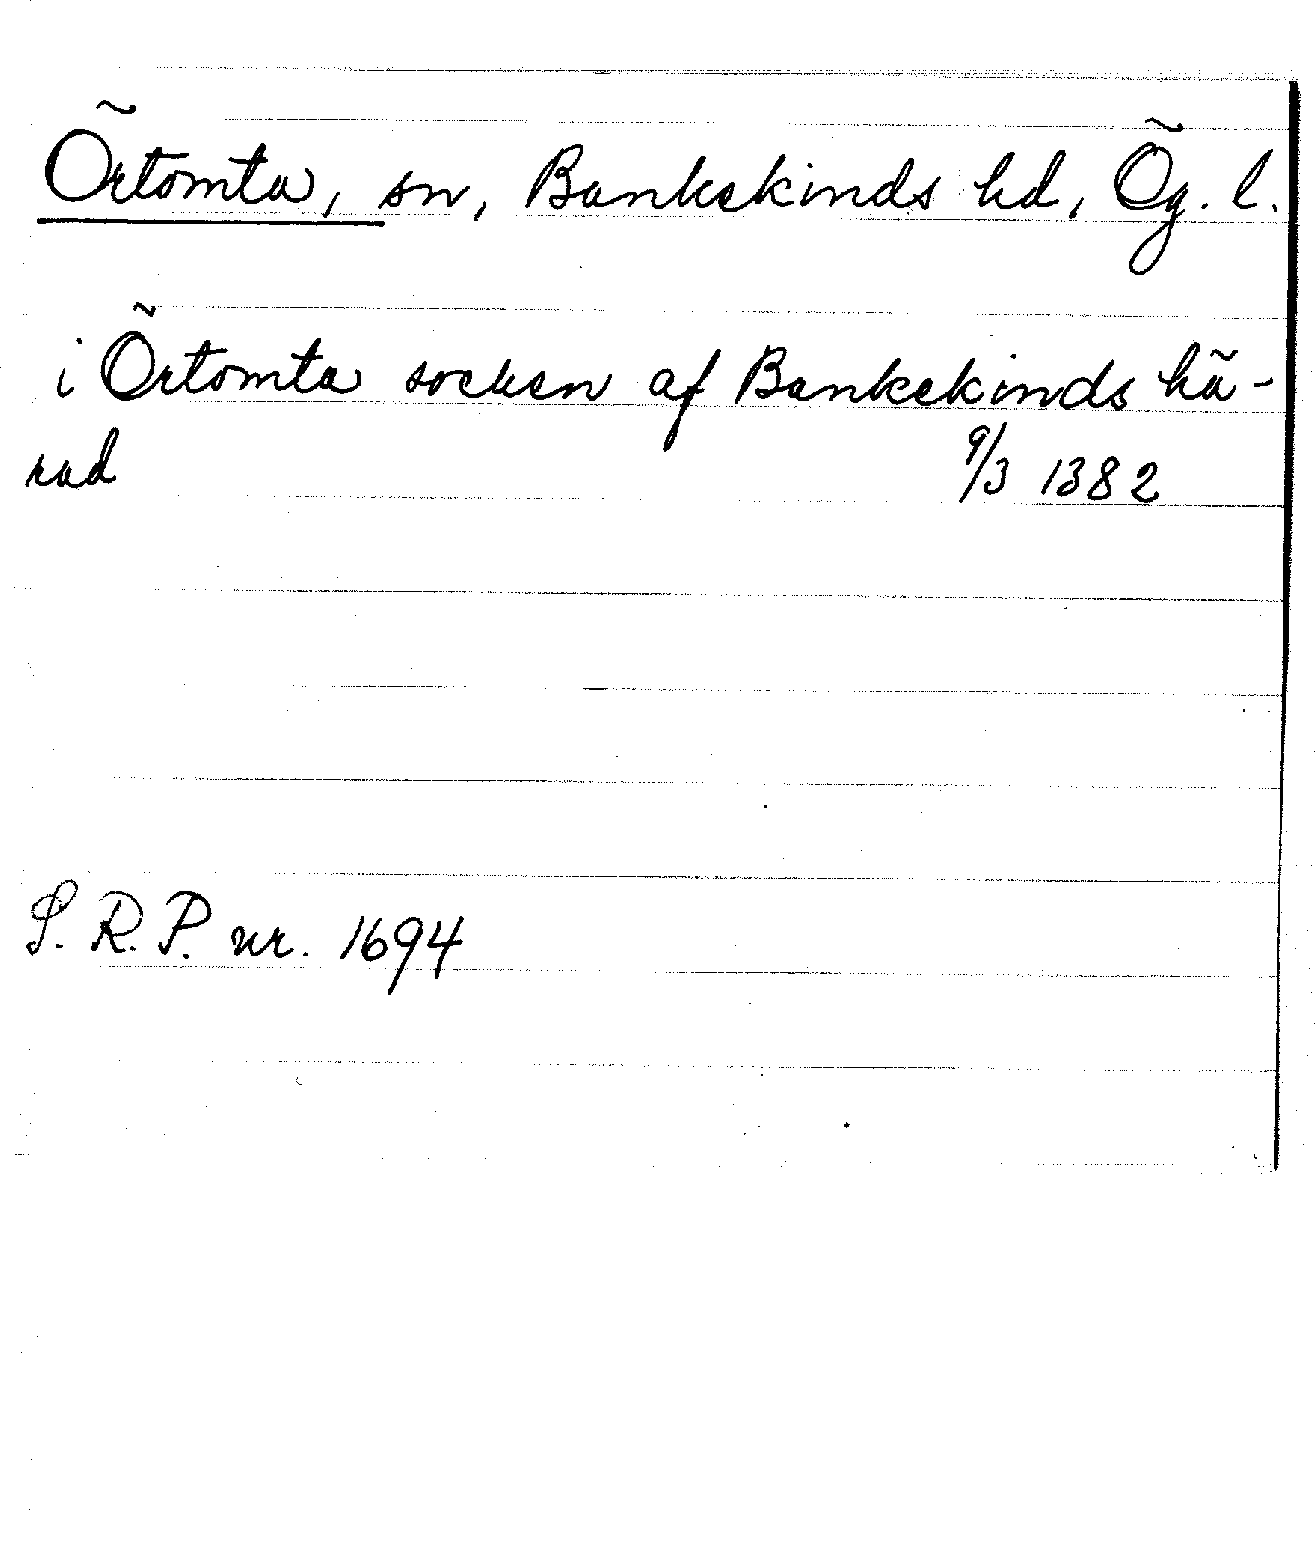 Örtomta, sn, Bankekinds hd, Ög. l.
i Örtomta socken af Bankekinds hä-
rad 9/3 1382
S. R. P. nr. 1694